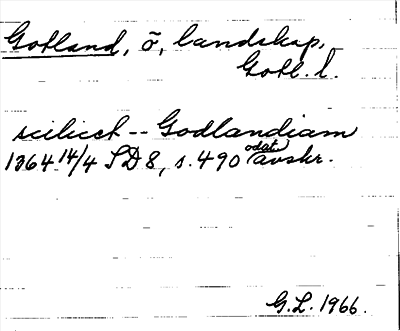 Gotland, ö, landskap,
Gotl. l.
scilicet -- Godlandiam
1364 14/4 SD 8, s. 490 odat. avskr.
G.L. 1966.